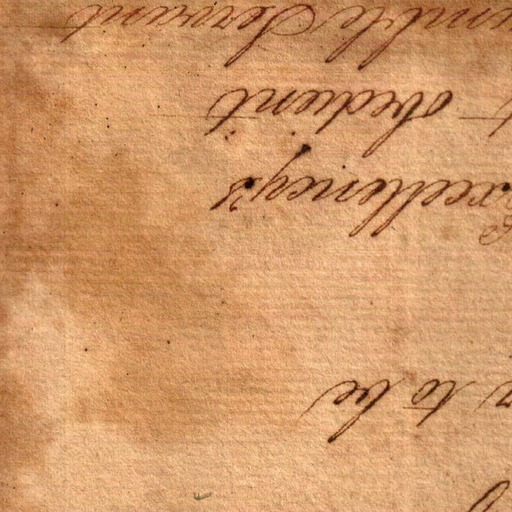 to be
Excellency's
obedient
umble Servant